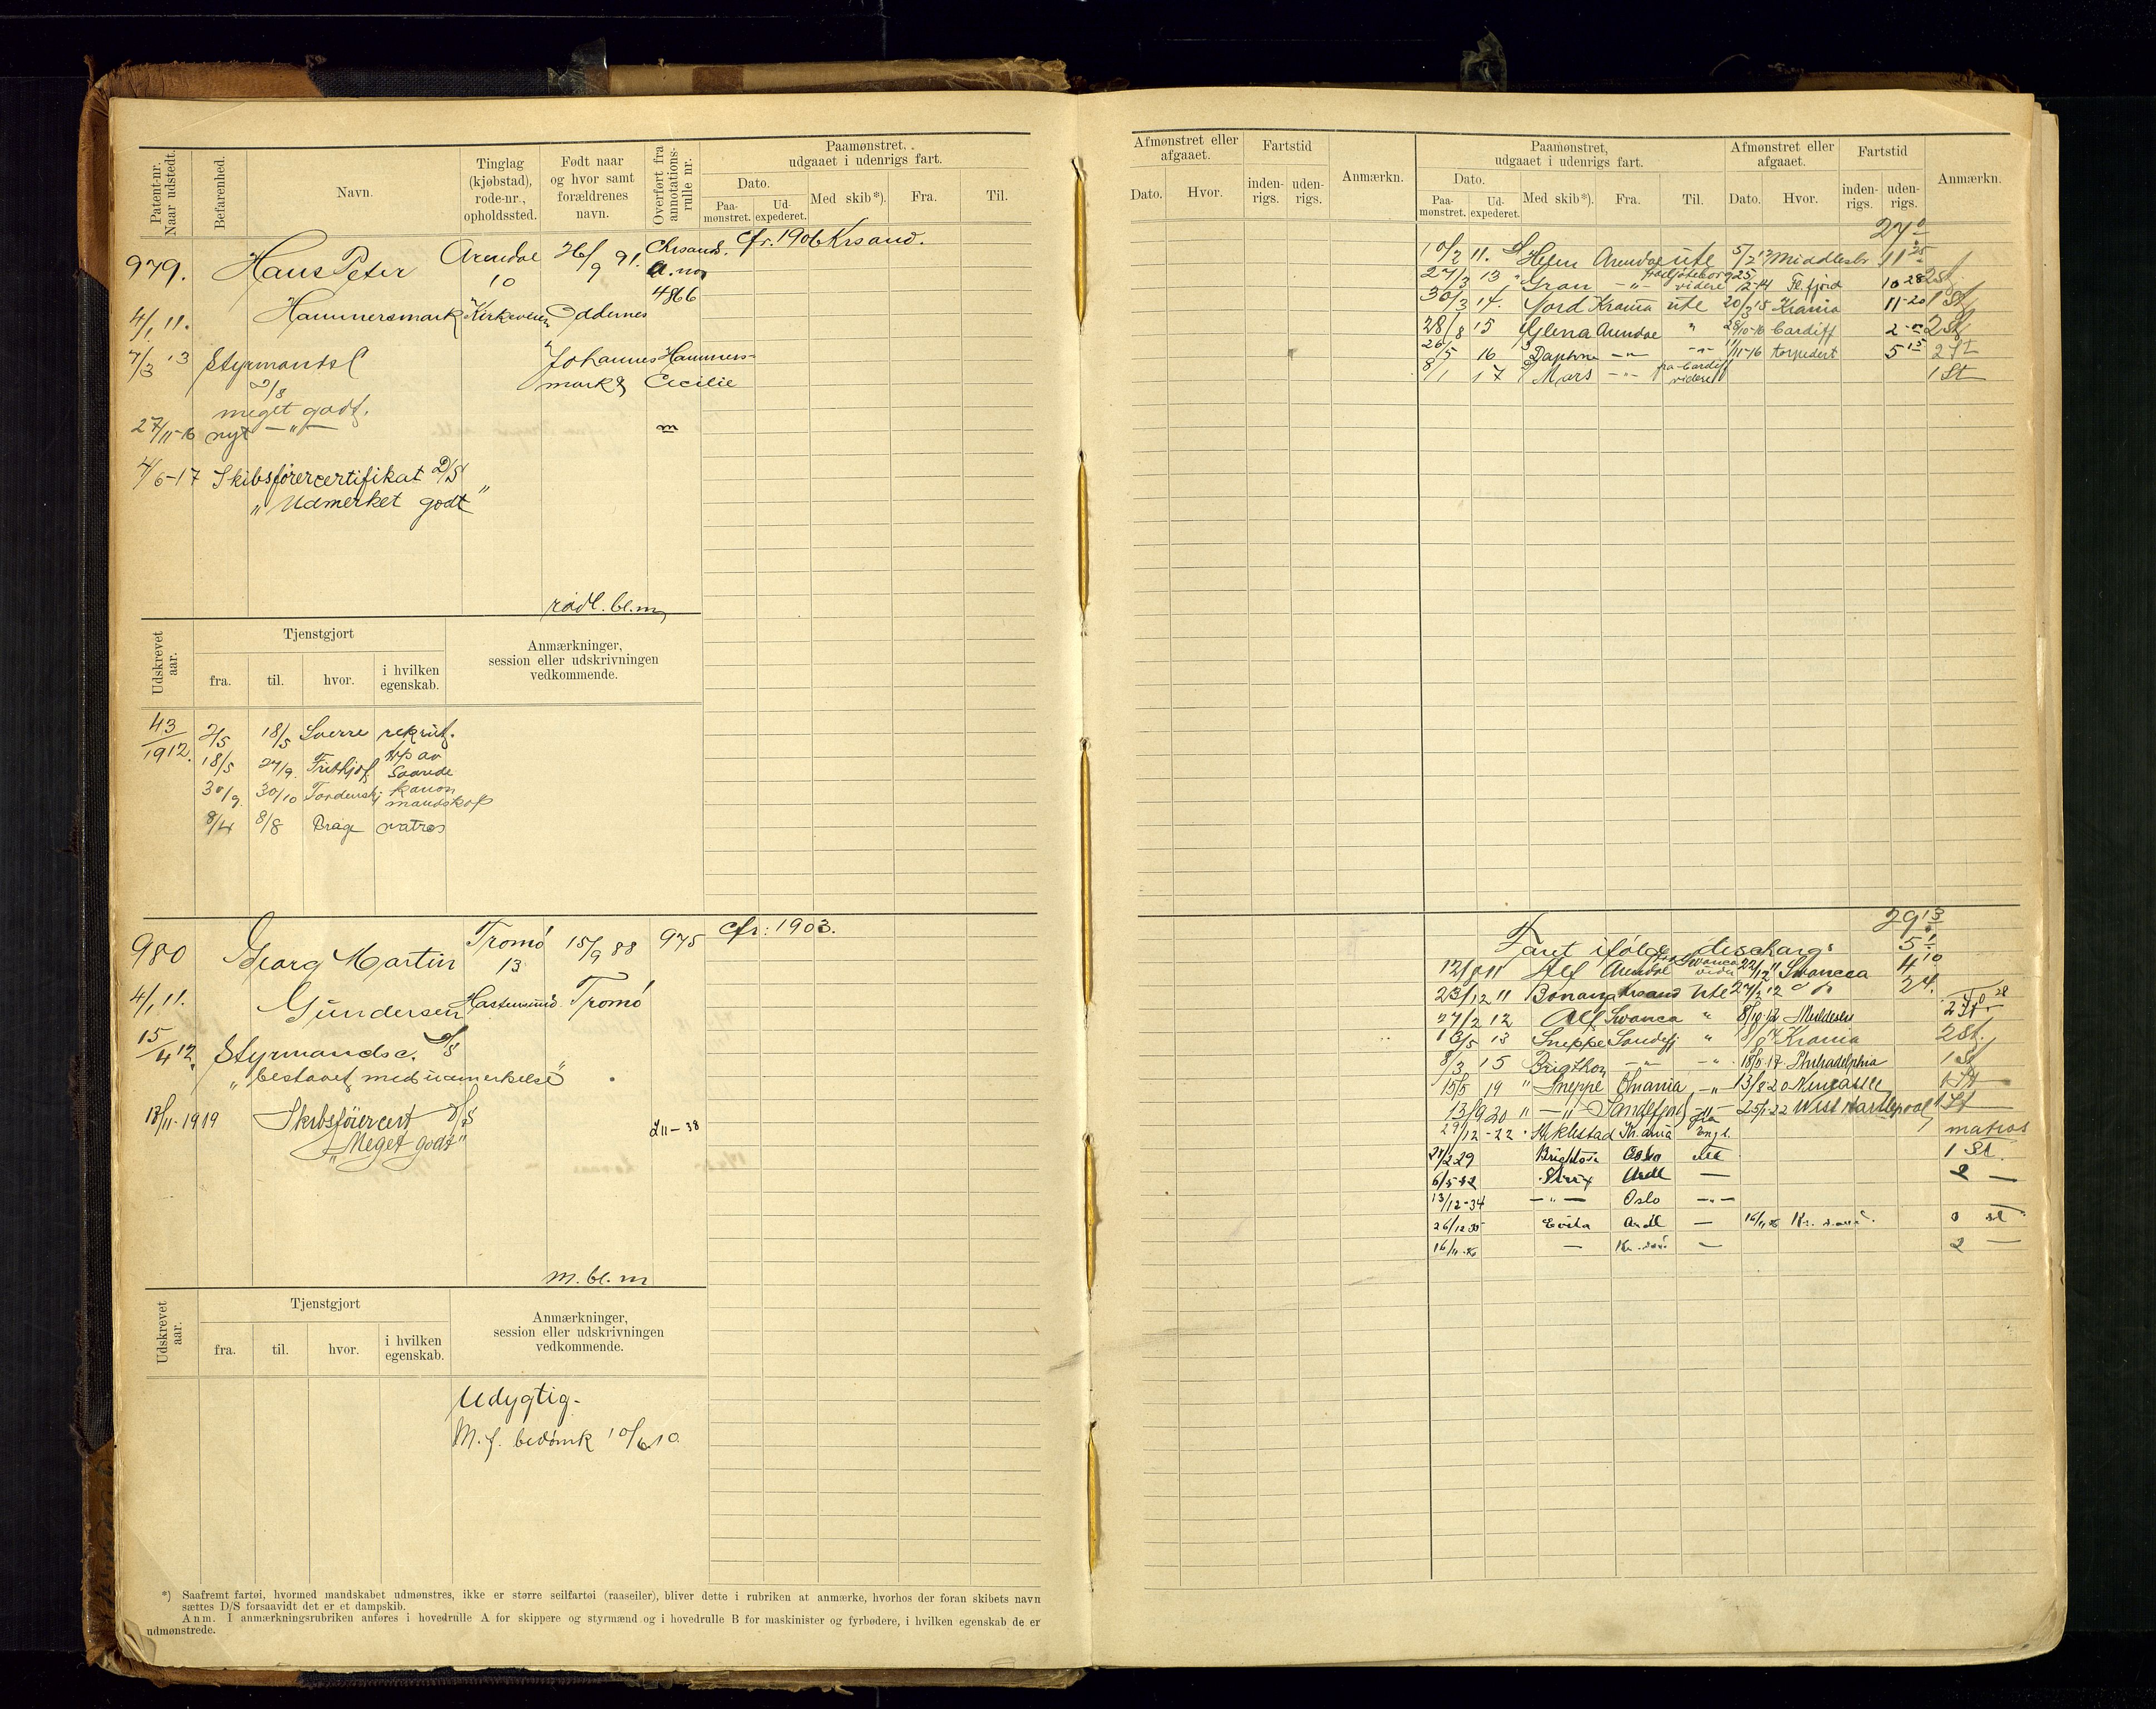 Patent-nr. Naar udstedt.
Befarenhed.
Navn.
Tinglag (kjøbstad), rode-nr., opholdssted.
Født naar og hvor samt forældrenes navn.
Overført fra annotations-rulle nr.
Paamønstret. udgaaet i udenrigs fart.
Dato.
Paa-mønstret.
Ud-expederet.
Med skib*).
Fra.
Til.
979.
Hans Peter
Arendal
10
26/9 91.
Chrsand.
A. no
4866
cfr. 1906 Krsand.
4/1 11.
Hammersmark
Kirkeveien
Oddernes
7/3 13
Styrmandsc
D/S
meget godt.
Johannes Hammers-
mark & Cecilie
27/11-16 nyt —"—
m
4/6-17 Skibsførercertifikat D/S
"Udmerket godt"
rødl. bl. m
Udskrevet aar.
Tjenstgjort
fra.
til.
hvor.
i hvilken egenskab.
Anmærkninger, session eller udskrivningen vedkommende.
43/1912.
2/5 18/5 Sverre rekrut.
18/5 27/9. Frithjof
30/9. 30/10 Tordenskj kanon mandskap
8/4 8/8 Brage matros
980
Georg Martin
Tromø
13
15/9 88
975
cfr: 1903.
4/1 11.
Gundersen
Hastensund.
Tromø
15/4 12.
Styrmandsc. D/S
"bestaaet med udmerkelse"
18/11-1919
Skibsförercert D/S
"Meget godt"
L11-38
m. bl. m
Udskrevet aar.
Tjenstgjort
fra.
til.
hvor.
i hvilken egenskab.
Anmærkninger, session eller udskrivningen vedkommende.
Udygtig.
M. f. bedömk 10/6 10.
*) Saafremt fartøi, hvormed mandskabet udmønstres, ikke er større seilfartøi (raaseiler), bliver dette i rubriken at anmærke, hvorhos der foran skibets navn
sættes D/S forsaavidt det er et dampskib.
Anm. I anmærkningsrubriken anføres i hovedrulle A for skippere og styrmænd og i hovedrulle B for maskinister og fyrbødere, i hvilken egenskab de er
udmønstrede.
Afmønstret eller afgaaet.
Dato.
Hvor.
Fartstid
inden-rigs.
uden-rigs.
Anmærkn.
Paamønstret, udgaaet i udenrigs fart.
Dato.
Paa-mønstret.
Ud-expederet.
Med skib*).
Fra.
Til.
Afmønstret eller afgaaet.
Dato.
Hvor.
Fartstid
inden-rigs.
uden-rigs.
Anmærkn.
10/2 11. Helen Arendal ute 5/2 13 Middlesbr 11 25
27/3 13 " Gran —"— videre 2-14 Fl.fjord 10 28 2 st
30/3 14. Nord Krania ute 20/3 15 Krania 11-20 1 St
28/8 15 Glena Arendal " 28/10-16 Cardiff 2 St
26/5 16 Daphne —"— —"— 1/11-16 torpedert 5 15 2 St
8/1 17 Mars —"— fra Cardiff videre 1 St
29 13
Faret ifølge discharg:
5 1
12/8 11 Alf Arendal 22/12 11 Swancea 4 10
23/12 11 Krsand Ute 27/2 12 24.
27/2 12 Alf Swanca " 8/10 12 Middesbr
13/5 13 Sneppe Sandefj " Krania 2 St.
8/3 15 Brigthon —"— —"— 18/5 17 Philadelphia 1 St
15/5 19 " Sneppe Krania —"— 13/8 20 Newcastle 1 St
13/9 20 " —"— Sandefjord —"— 25/1-22 West Hartlepool 1 St
29/12-22 Kr.ania fra Engl. matros
27/2 29 Brighton Oslo ute 1 St.
6/5-32 Strix Ardl — 2 —
13/12-34 —"— Oslo —"—
26/12 35 Evita Ardl — 16/11 36 Kr. sand. 3 st
16/11-36 — Kr. sand — 2 —